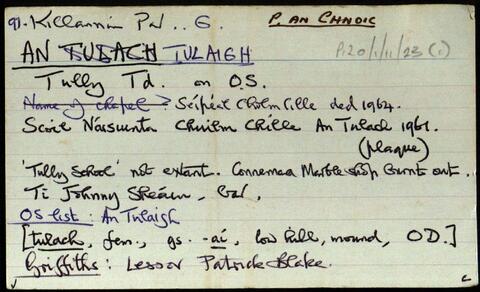 91. Killannin Par .. G. P. AN CHNOIC
P120/1/11/23 (i)
AN TULACH TULAIGH
Tully Td. on O.S.
Name of chapel? Séipéal Cholm Cille ded 1964.
Scoil Náisiúnta Chuilm Chille An Tulach 1961.
(Plaque)
'Tully School' not extant. Connemara Marble shop burnt out.
Tí Johnny Sheáin, Gal,
OS list: An Tulaigh
[tulach, fem., gs. -aí, low hill, mound, OD.]
Griffiths: Lessor Patrick Blake.